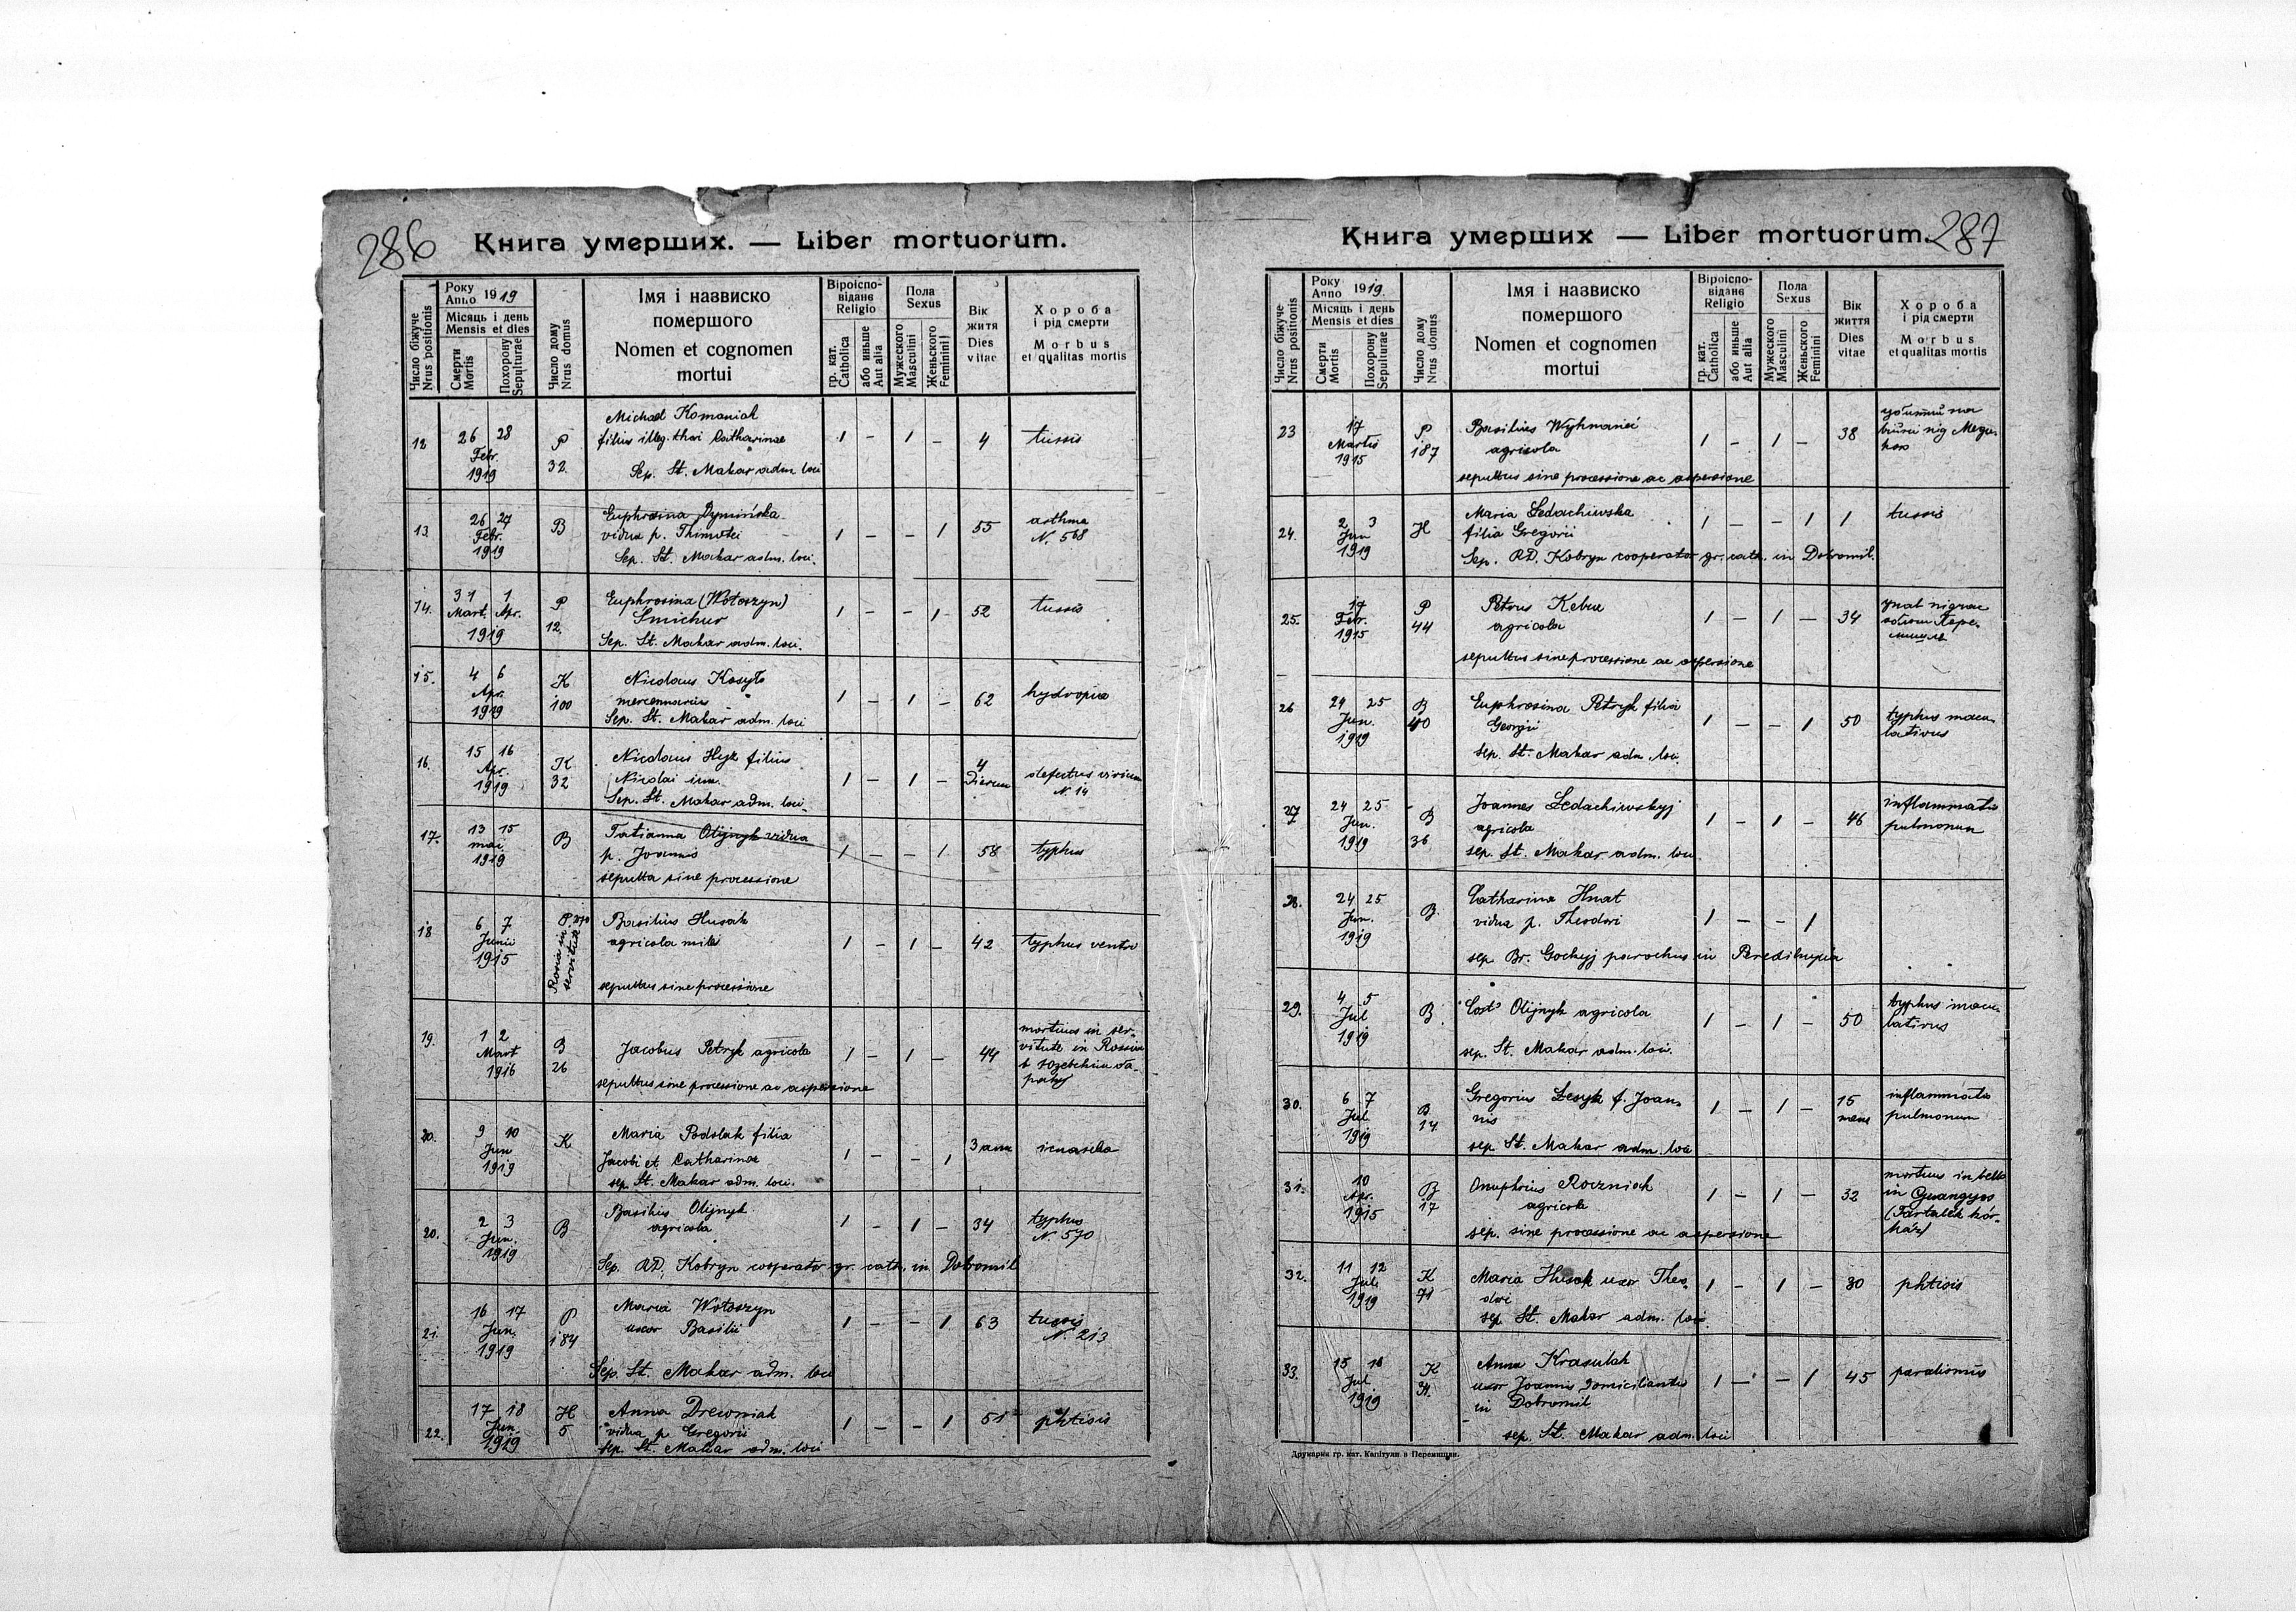 286
Книга умерших. — Liber mortuorum.
Число біжуче
Nrus positionis
Року
Anno 1919
Місяць і день
Mensis et dies
Смерти
Mortis
Похорону
Sepulturae
Число дому
Nrus domus
Імя і назвиско
помершого
Nomen et cognomen
mortui
Віроіспо-
відане
Religio
гр. кат.
Catholica
або иньше
Aut alia
Пола
Sexus
Мужеского
Masculini
Женьского
Feminini
Вік
житя
Dies
vitae
Хороба
і рід смерти
Morbus
et qualitas mortis
12 26 28 Febr. 1919 P 32
Michael Komaniak
filius illeg. thori Catharinae
Sep. St. Makar adm. loci
1 - 1 - 4 tussis
13 26 27 Febr. 1919 B
Euphrosina Dymińska
vidua p. Thimotei
Sep. St. Makar adm. loci.
1 - - 1 55 asthma
N. 568
14. 31 1 Mart. Apr. 1919 P 12.
Euphrosina (Wołoszyn)
Smichur
Sep. St. Makar adm. loci.
1 - - 1 52 tussis
15. 4 6 Apr. 1919 K 100
Nicolaus Kosyło
mercennarius
Sep. St. Makar adm. loci
1 - 1 - 62 hydropia
16. 15 16 Apr. 1919 K 32
Nicolaus Hyk filius
Nicolai iun.
Sep. St. Makar adm. loci.
1 - 1 - 4 Dierum defectus virium
N. 14
17. 13 15 mai 1919 B
Tatianna Olijnyk vidua
p. Joannis
sepulta sine processione
1 - - 1 58 typhus
18 6 7 Junii 1915 P
servitute
Basilius Husak
agricola miles
sepultus sine processione
1 - 1 - 42 typhus ventr.
19. 1 2 Mart 1916 B 26
Jacobus Petryk agricola
sepultus sine processione ac aspersione
1 - 1 - 44 mortuus in ser-
vitute in Rossia
20. 9 10 Jun 1919 K
Maria Podolak filia
Jacobi et Catharinae
sep. St. Makar adm. loci.
1 - - 1 3 ann
20. 2 3 Jun. 1919 B
Basilius Olijnyk
agricola
Sep. RD. Kobryn cooperator gr. cath. in Dobromil
1 - 1 - 34 typhus
N. 570
21. 16 17 Jun. 1919 P 184
Maria Wołoszyn
uxor Basilii
Sep. St. Makar adm. loci
1 - - 1 63 tussis
N. 213
22. 17 18 Jun. 1919 H 5
Anna Drewniak
vidua p. Gregorii
sep. St. Makar adm. loci
1 - - 1 51 phtisis
287
Книга умерших — Liber mortuorum.
Число біжуче
Nrus positionis
Року
Anno 1919.
Місяць і день
Mensis et dies
Смерти
Mortis
Похорону
Sepulturae
Число дому
Nrus domus
Імя і назвиско
помершого
Nomen et cognomen
mortui
Віроіспо-
відане
Religio
гр. кат.
Catholica
або иньше
Aut alia
Пола
Sexus
Мужеского
Masculini
Женьского
Feminini
Вік
життя
Dies
vitae
Хороба
і рід смерти
Morbus
et qualitas mortis
23 17 Martis 1915 P 187
Basilius
agricola
sepultus sine processione ac aspersione
1 - 1 - 38
24. 2 3 Jun 1919 H
Maria Ledachiwska
filia Gregorii
Sep. RD. Kobryn cooperator gr. cath. in Dobromil.
1 - - 1 1 tussis
25. 17 Febr. 1915 P 44
Petrus
agricola
sepultus sine processione ac aspersione
1 - 1 - 34
26 24 25 Jun. 1919 B 40
Euphrosina Petryk filia
Georgii
sep. St. Makar adm. loci.
1 - - 1 50 typhus macu-
lativus
27 24 25 Jun. 1919 B 36
Joannes Ledachiwskyj
agricola
sep. St. Makar adm. loci
1 - 1 - 46 inflammatio
pulmonum
28. 24 25 Jun. 1919 B.
Catharina Hnat
vidua p. Theodori
sep. Br. Gockyj parochus in
1 - - 1
29. 4 5 Jul 1919 B
Olijnyk agricola
sep. St. Makar adm. loci.
1 - 1 - 50 typhus macu-
lativus
30. 6 7 Jul. 1919 B 14
Gregorius Lesyk f. Joan-
nis
sep. St. Makar adm. loci
1 - 1 - 15 mens inflammatio
pulmonum
31. 10 Apr. 1915 B 17
Onuphrius Roczniak
agricola
sep. sine processione ac aspersione
1 - 1 - 32 mortuus in bello
in Gyöngyös
32. 11 12 Juli 1919 K 71
Maria Husak uxor Theo-
dori
sep. St. Makar adm. loci.
1 - 1 - 80 phtisis
33. 15 16 Jul 1919 K
Anna Krasulak
uxor Joannis domiciliantis
in Dobromil
sep. St. Makar adm. loci
1 - - 1 45
Друкарня гр. кат. Капітули в Перемишли.